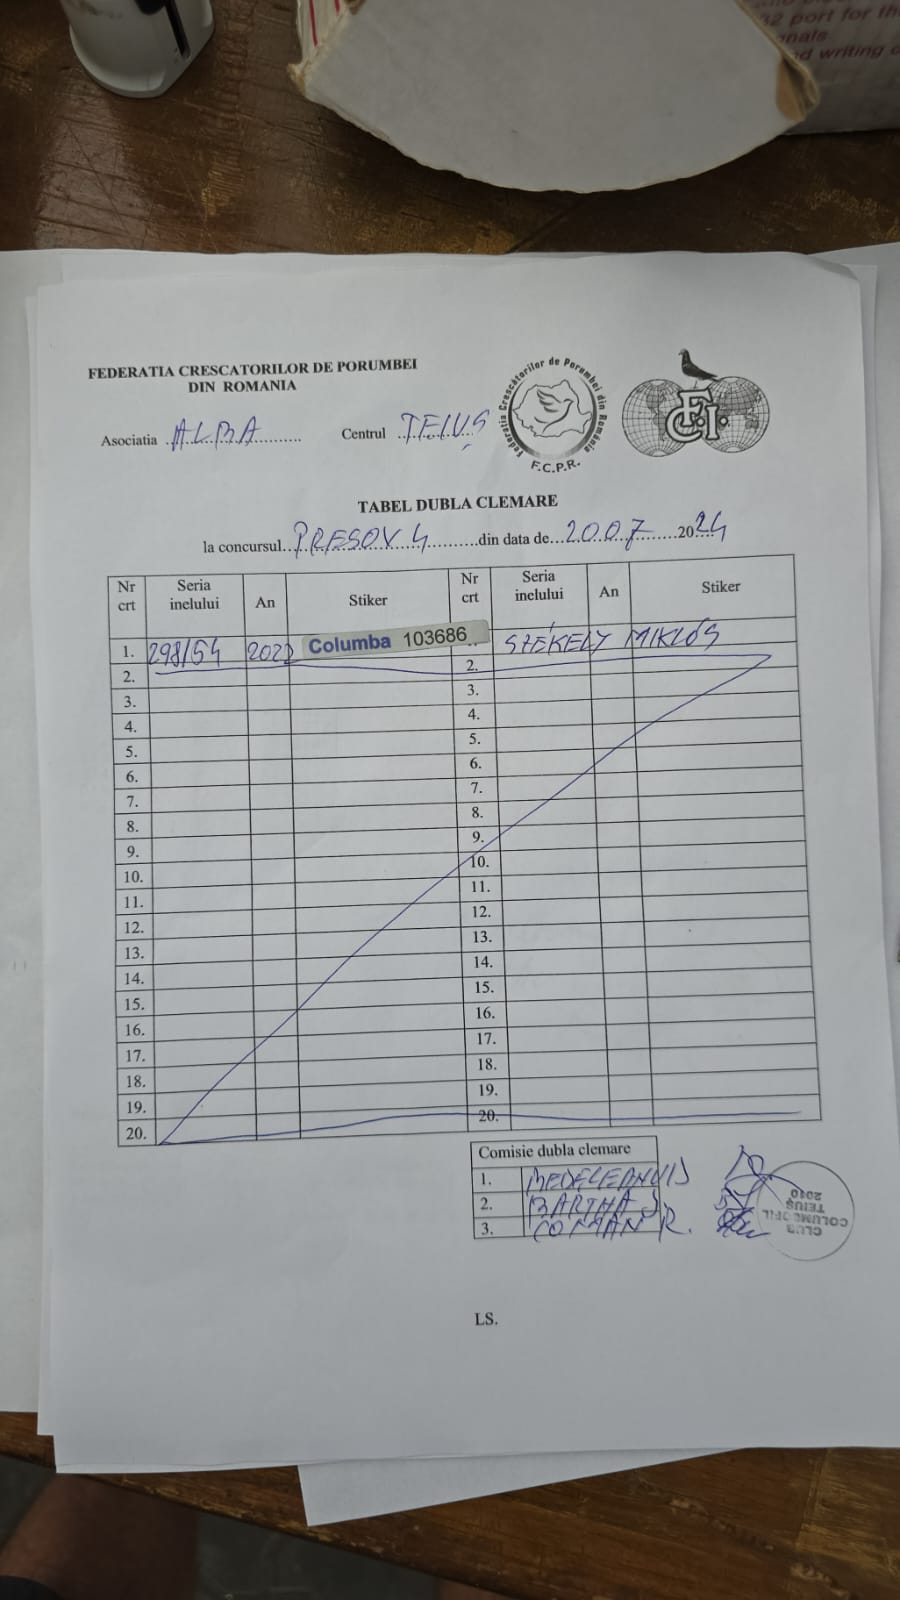 32 port for th
nals
d writing o
FEDERATIA CRESCATORILOR DE PORUMBEI
DIN ROMANIA
Asociatia ALBA Centrul TEIUȘ
Federația Crescătorilor de Porumbei din România
F.C.P.R.
FCI
TABEL DUBLA CLEMARE
la concursul PRESOV 4 din data de 20.07 2024
Nr crt Seria inelului An Stiker Nr crt Seria inelului An Stiker
1. 298/54 2022 Columba 103686 SZÉKELY MIKLÓS
2. 2.
3. 3.
4. 4.
5. 5.
6. 6.
7. 7.
8. 8.
9. 9.
10. 10.
11. 11.
12. 12.
13. 13.
14. 14.
15. 15.
16. 16.
17. 17.
18. 18.
19. 19.
20. 20.
Comisie dubla clemare
1.
2. BARTHA S.
3. COMAN R.
CLUB
COLUMBOFIL
TEIUȘ
2010
LS.